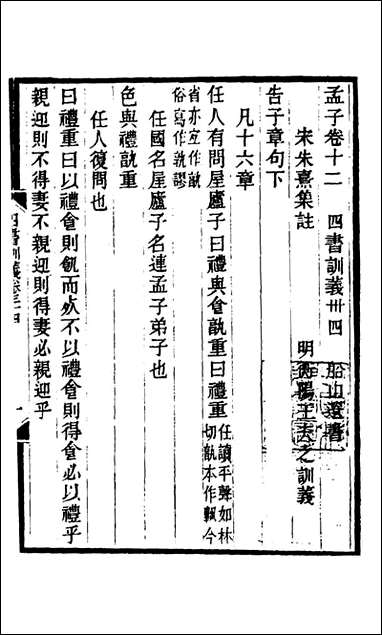 孟子卷十二 四書訓義卅四 船山遺書
宋朱熹集註 明衡陽王夫之訓義
告子章句下
凡十六章
任人有問屋廬子曰禮與食孰重曰禮重 任讀平聲如林切孰本作今
省亦宜作俗寫作孰謬
任國名屋廬子名連孟子弟子也
色與禮孰重
任人復問也
曰禮重曰以禮食則飢而死不以禮食則得食必以禮乎
親迎則不得妻不親迎則得妻必親迎乎
四書訓義卷三十四 一